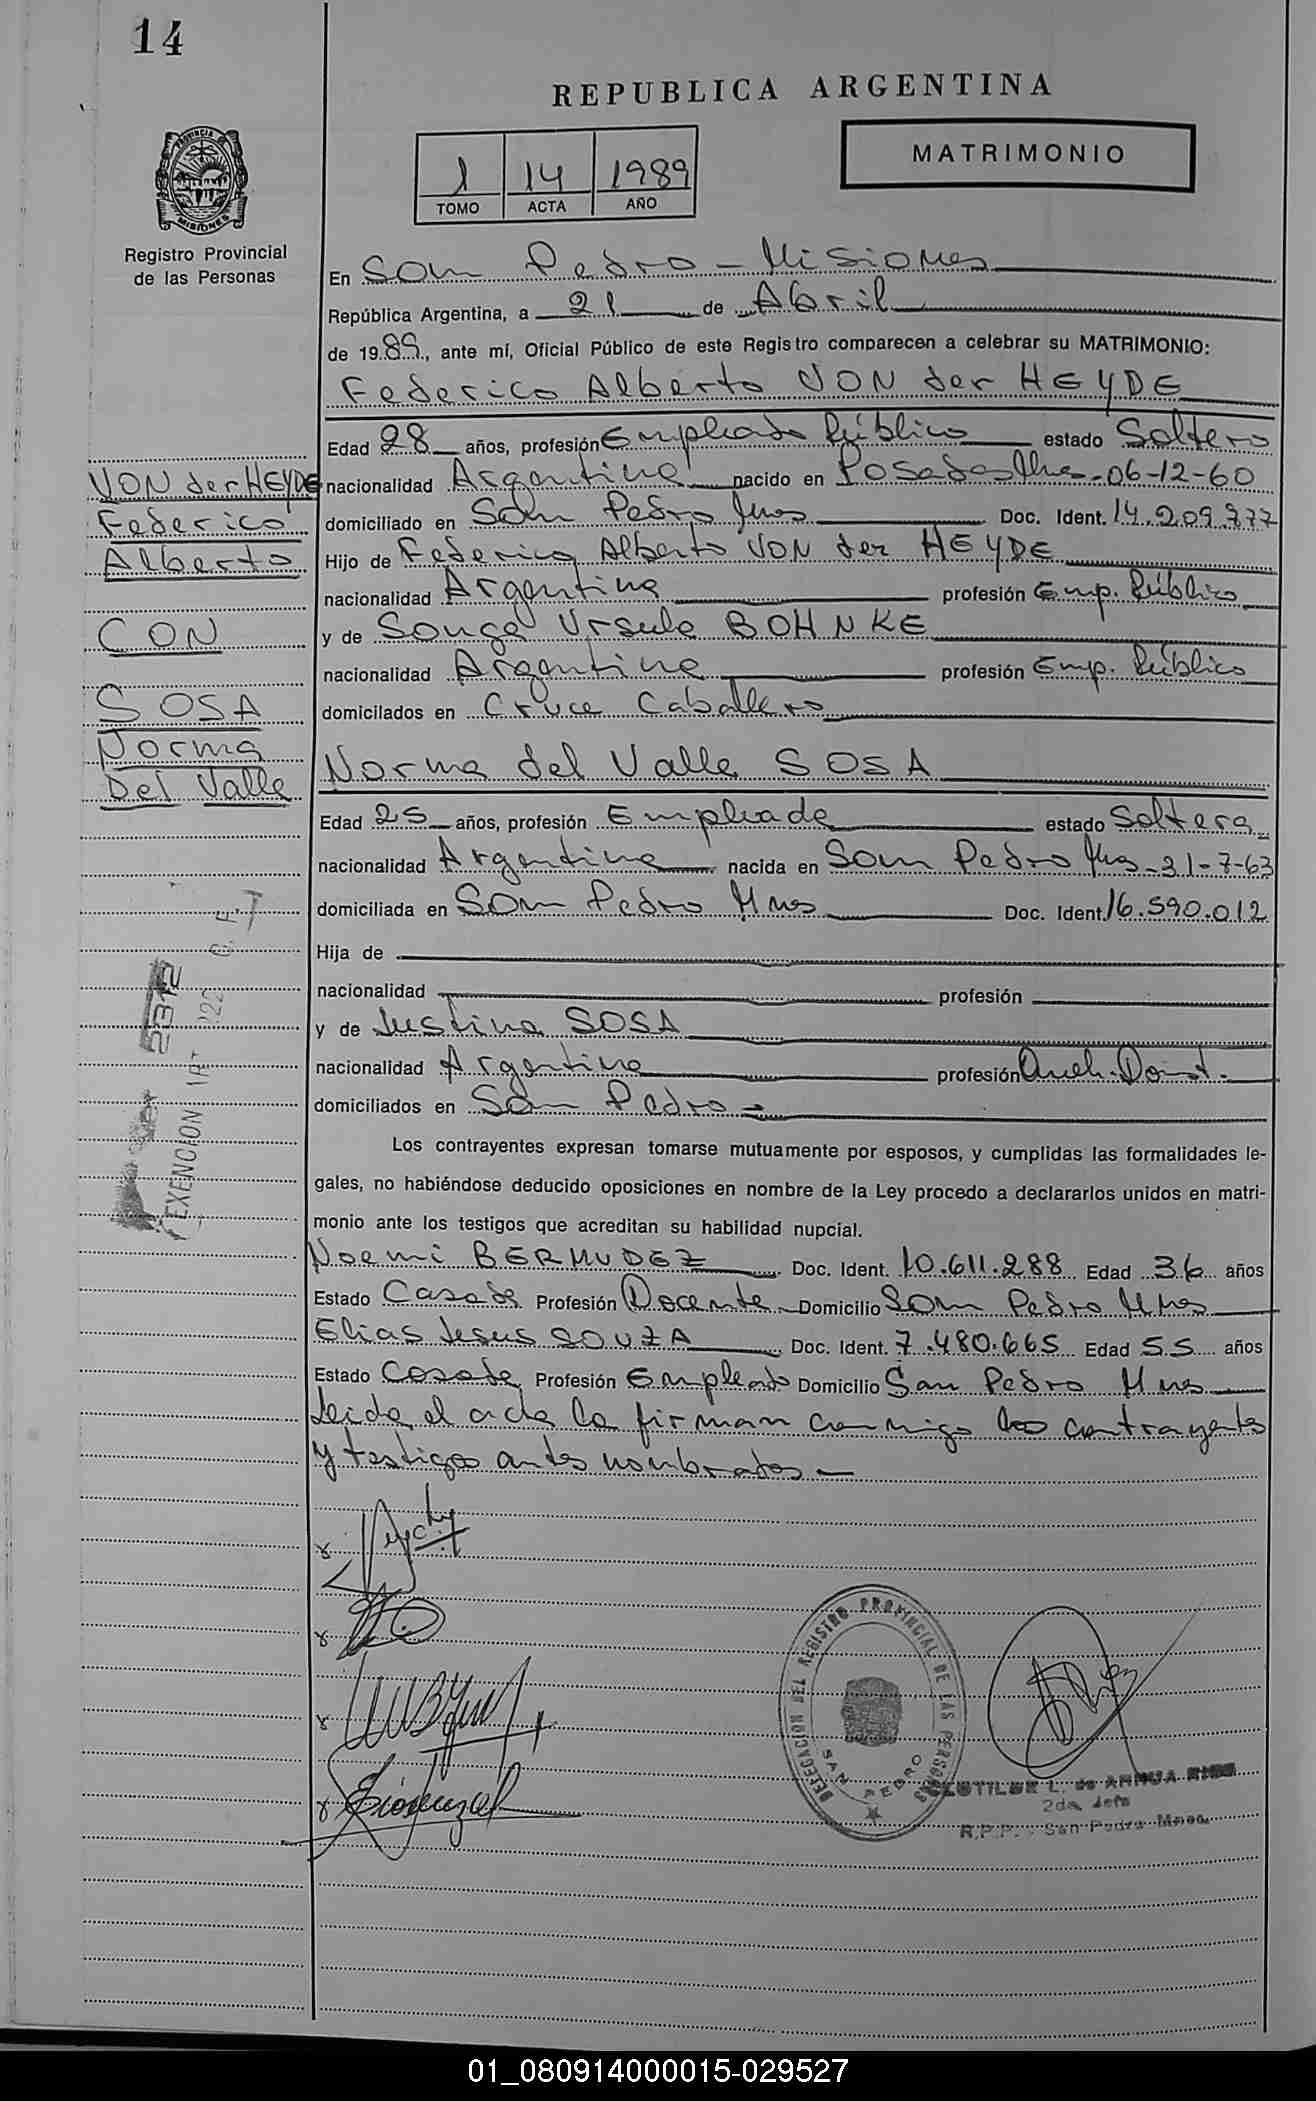 14
REPUBLICA ARGENTINA
MATRIMONIO
1 14 1989
TOMO ACTA AÑO
PROVINCIA DE
MISIONES
Registro Provincial
de las Personas
En San Pedro - Misiones
República Argentina, a 21 de Abril
de 1989, ante mí, Oficial Público de este Registro comparecen a celebrar su MATRIMONIO:
Federico Alberto VON der HEYDE
Edad 28 años, profesión Empleado Público estado Soltero
VON der HEYDE
Federico
Alberto
CON
SOSA
Norma
Del Valle
nacionalidad Argentina nacido en Posadas Mnes - 06-12-60
domiciliado en San Pedro Mnes Doc. Ident. 14.209.777
Hijo de Federico Alberto VON der HEYDE
nacionalidad Argentina profesión Emp. Público
y de Ursula BOHNKE
nacionalidad Argentina profesión Emp. Público
domicilados en Cruce Caballero
Norma del Valle SOSA
Edad 25 años, profesión Empleada estado Soltera
nacionalidad Argentina nacida en San Pedro Mnes - 31-7-63
domiciliada en San Pedro Mnes Doc. Ident. 16.590.012
Hija de
nacionalidad profesión
y de Justina SOSA
nacionalidad Argentina profesión
domiciliados en San Pedro -
2312
EXENCION
Los contrayentes expresan tomarse mutuamente por esposos, y cumplidas las formalidades le-
gales, no habiéndose deducido oposiciones en nombre de la Ley procedo a declararlos unidos en matri-
monio ante los testigos que acreditan su habilidad nupcial.
Noemi BERMUDEZ Doc. Ident. 10.611.288 Edad 36 años
Estado Casada Profesión Docente Domicilio San Pedro Mnes
Elias Jesus SOUZA Doc. Ident. 7.480.665 Edad 55 años
Estado Casado Profesión Empleado Domicilio San Pedro Mnes
Leida el acta la firman conmigo los contrayentes
y testigos antes nombrados -
DELEGACION DEL REGISTRO PROVINCIAL DE LAS PERSONAS
SAN PEDRO
CLOTILDE L. de
2da. Jefa
R.P.P. - San Pedro - Mnes.
01_080914000015-029527